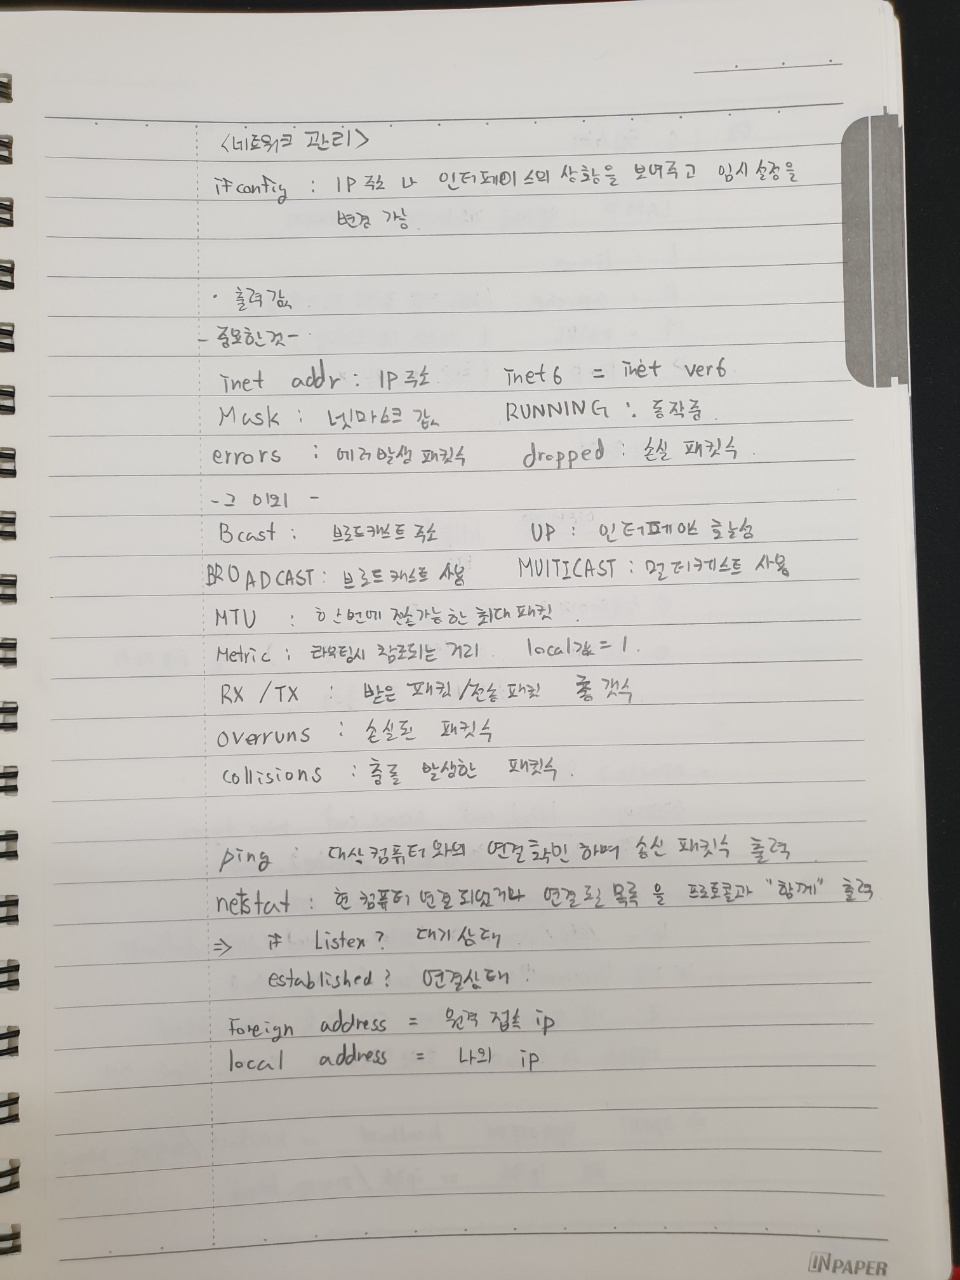 <네트워크 관리>
ifconfig : IP 주소 나 인터페이스의 상황을 보여주고 임시설정을
변경 가능.
· 출력값
- 중요한것 -
inet addr : IP 주소 inet6 = inet ver6
Mask : 넷마스크 값 RUNNING : 동작중
errors : 에러발생 패킷수 dropped : 손실 패킷수.
- 그 이외 -
Bcast : 브로드캐스트 주소 UP : 인터페이스 활성
BROADCAST : 브로드캐스트 사용 MUITICAST : 멀티케스트 사용
MTU : 한번에 전송가능한 최대 패킷.
Metric : 라우팅시 참조되는 거리. local값 = 1.
RX / TX : 받은 패킷/전송 패킷 총 갯수
overruns : 손실된 패킷수
collisions : 충돌 발생한 패킷수.
ping : 대상컴퓨터와의 연결확인 하며 송신 패킷수 출력.
netstat : 현 컴퓨터 연결되었거나 연결될 목록을 프로토콜과 "함께" 출력
⇒ if Listen? 대기상태
established? 연결상태.
Foreign address = 원격 접속 ip
local address = 나의 ip
INPAPER